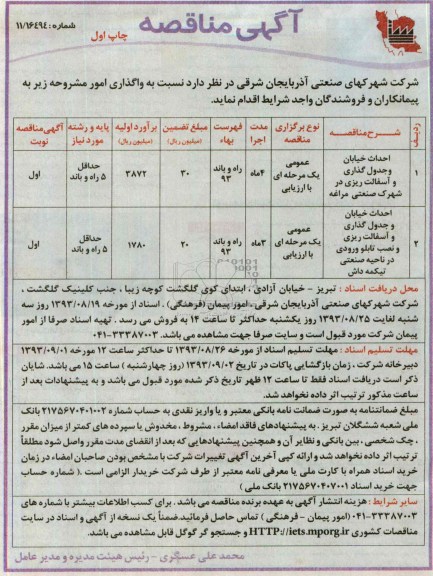 آگهی مناقصه
شماره: ۱۱/۱۶۴۹۴
چاپ اول
شرکت شهرکهای صنعتی آذربایجان شرقی در نظر دارد نسبت به واگذاری امور مشروحه زیر به
پیمانکاران و فروشندگان واجد شرایط اقدام نماید.
ردیف | شرح مناقصه | نوع برگزاری مناقصه | مدت اجرا | فهرست بهاء | مبلغ تضمین (میلیون ریال) | برآورد اولیه (میلیون ریال) | پایه و رشته مورد نیاز | آگهی مناقصه نوبت
۱ | احداث خیابان وجدول گذاری و آسفالت ریزی در شهرک صنعتی مراغه | عمومی یک مرحله ای با ارزیابی | ۴ماه | راه و باند ۹۳ | ۳۰ | ۳۸۷۲ | حداقل ۵ راه و باند | اول
۲ | احداث خیابان و جدول گذاری و آسفالت ریزی و نصب تابلو ورودی در ناحیه صنعتی تیکمه داش | عمومی یک مرحله ای با ارزیابی | ۳ماه | راه و باند ۹۳ | ۲۰ | ۱۷۸۰ | حداقل ۵ راه و باند | اول
محل دریافت اسناد : تبریز - خیابان آزادی ، ابتدای کوی گلگشت کوچه زیبا ، جنب کلینیک گلگشت ،
شرکت شهرکهای صنعتی آذربایجان شرقی ، امور پیمان (فرهنگی) . اسناد از مورخه ۱۳۹۳/۰۸/۱۹ روز سه
شنبه لغایت ۱۳۹۳/۰۸/۲۵ روز یکشنبه حداکثر تا ساعت ۱۴ به فروش می رسد . تهیه اسناد صرفا از امور
پیمان شرکت مورد قبول است و سایت صرفا جهت مشاهده می باشد. ۳۳۳۸۷۰۰۳-۰۴۱
مهلت تسلیم اسناد : مهلت تسلیم اسناد از مورخه ۱۳۹۳/۰۸/۲۶ تا حداکثر ساعت ۱۲ مورخه ۱۳۹۳/۰۹/۰۱
دبیرخانه شرکت ، زمان بازگشایی پاکات در تاریخ ۱۳۹۳/۰۹/۰۲ (روز چهارشنبه ) ساعت ۱۵ می باشد. شایان
ذکر است دریافت اسناد فقط تا ساعت ۱۲ ظهر تاریخ ذکر شده مورد قبول می باشد و به پیشنهادات بعد از
ساعت مذکور ترتیب اثر داده نخواهد شد.
مبلغ ضمانتنامه به صورت ضمانت نامه بانکی معتبر و یا واریز نقدی به حساب شماره ۲۱۷۵۶۷۰۴۰۱۰۰۲ بانک
ملی شعبه ششگلان تبریز . به پیشنهادهای فاقد امضاء ، مشروط ، مخدوش یا سپرده های کمتر از میزان مقرر
، چک شخصی ، بین بانکی و نظایر آن و همچنین پیشنهادهایی که بعد از انقضای مدت مقرر واصل شود مطلقاً
ترتیب اثر داده نخواهد شد و ارائه کپی آخرین آگهی تغییرات شرکت با مشخص بودن صاحبان امضاء در زمان
خرید اسناد همراه با کارت ملی یا معرفی نامه معتبر از طرف شرکت خریدار الزامی است .( شماره حساب
جهت خرید اسناد ۲۱۷۵۶۷۰۴۰۷۰۰۱ بانک ملی )
سایر شرایط : هزینه انتشار آگهی به عهده برنده مناقصه می باشد . برای کسب اطلاعات بیشتر با شماره های
۳۳۳۸۷۰۰۳-۰۴۱ (امور پیمان - فرهنگی ) تماس حاصل فرمائید.ضمناً یک نسخه از آگهی و اسناد در سایت
مناقصات کشوری HTTP://iets.mporg.ir و جستجو گر گوگل قابل مشاهده می باشد.
محمد علی عسگری - رئیس هیئت مدیره و مدیر عامل